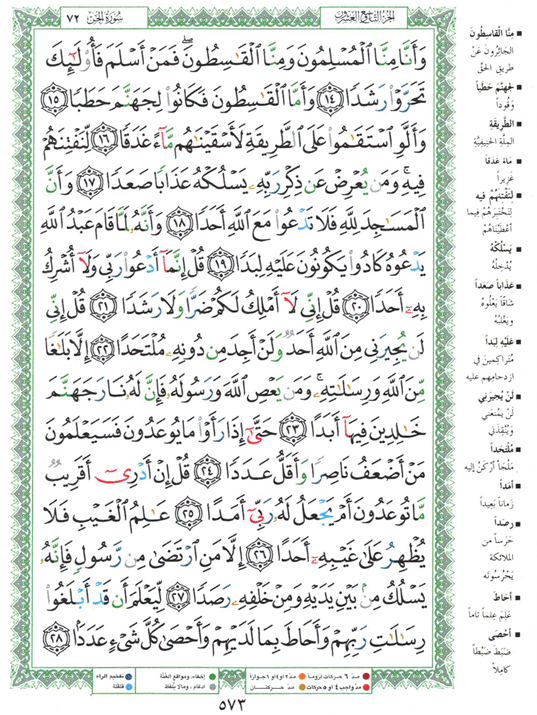 الجزء التاسع والعشرون
سُورَةُ الْجِنّ ٧٢
وَأَنَّا مِنَّا الْمُسْلِمُونَ وَمِنَّا الْقَاسِطُونَ ۖ فَمَنْ أَسْلَمَ فَأُولَٰئِكَ
تَحَرَّوْا رَشَدًا ١٤ وَأَمَّا الْقَاسِطُونَ فَكَانُوا لِجَهَنَّمَ حَطَبًا ١٥
وَأَلَّوِ اسْتَقَامُوا عَلَى الطَّرِيقَةِ لَأَسْقَيْنَاهُم مَّاءً غَدَقًا ١٦ لِّنَفْتِنَهُمْ
فِيهِ ۚ وَمَن يُعْرِضْ عَن ذِكْرِ رَبِّهِ يَسْلُكْهُ عَذَابًا صَعَدًا ١٧ وَأَنَّ
الْمَسَاجِدَ لِلَّهِ فَلَا تَدْعُوا مَعَ اللَّهِ أَحَدًا ١٨ وَأَنَّهُ لَمَّا قَامَ عَبْدُ اللَّهِ
يَدْعُوهُ كَادُوا يَكُونُونَ عَلَيْهِ لِبَدًا ١٩ قُلْ إِنَّمَا أَدْعُو رَبِّي وَلَا أُشْرِكُ
بِهِ أَحَدًا ٢٠ قُلْ إِنِّي لَا أَمْلِكُ لَكُمْ ضَرًّا وَلَا رَشَدًا ٢١ قُلْ إِنِّي
لَن يُجِيرَنِي مِنَ اللَّهِ أَحَدٌ وَلَنْ أَجِدَ مِن دُونِهِ مُلْتَحَدًا ٢٢ إِلَّا بَلَاغًا
مِّنَ اللَّهِ وَرِسَالَاتِهِ ۚ وَمَن يَعْصِ اللَّهَ وَرَسُولَهُ فَإِنَّ لَهُ نَارَ جَهَنَّمَ
خَالِدِينَ فِيهَا أَبَدًا ٢٣ حَتَّىٰ إِذَا رَأَوْا مَا يُوعَدُونَ فَسَيَعْلَمُونَ
مَنْ أَضْعَفُ نَاصِرًا وَأَقَلُّ عَدَدًا ٢٤ قُلْ إِنْ أَدْرِي أَقَرِيبٌ
مَّا تُوعَدُونَ أَمْ يَجْعَلُ لَهُ رَبِّي أَمَدًا ٢٥ عَالِمُ الْغَيْبِ فَلَا
يُظْهِرُ عَلَىٰ غَيْبِهِ أَحَدًا ٢٦ إِلَّا مَنِ ارْتَضَىٰ مِن رَّسُولٍ فَإِنَّهُ
يَسْلُكُ مِن بَيْنِ يَدَيْهِ وَمِنْ خَلْفِهِ رَصَدًا ٢٧ لِّيَعْلَمَ أَن قَدْ أَبْلَغُوا
رِسَالَاتِ رَبِّهِمْ وَأَحَاطَ بِمَا لَدَيْهِمْ وَأَحْصَىٰ كُلَّ شَيْءٍ عَدَدًا ٢٨
مِنَّا الْقَاسِطُونَ
الجَائِرُونَ عَنْ
طَرِيقِ الحَقِّ
لِجَهَنَّمَ حَطَباً
وَقُوداً
الطَّرِيقَةِ
المِلَّةِ الحَنِيفِيَّةِ
مَاءً غَدَقاً
غَزِيراً
لِنَفْتِنَهُمْ فِيهِ
لِنَخْتَبِرَهُمْ فِيمَا
أَعْطَيْنَاهُمْ
يَسْلُكْهُ
يُدْخِلْهُ
عَذَاباً صَعَداً
شَاقّاً يَعْلُوهُ
وَيَغْلِبُهُ
عَلَيْهِ لِبَداً
مُتَرَاكِمِينَ فِي
ازدحامِهِم عليه
لَنْ يُجِيرَنِي
لَنْ يَمْنَعَنِي
وَيُنْقِذَنِي
مُلْتَحَداً
مَلْجَأً أَرْكَنُ إليه
أَمَداً
زَمَاناً بَعِيداً
رَصَداً
حَرَساً من
الملائكة
يَحْرُسُونَه
أَحَاطَ
عَلِمَ عِلْماً تاماً
أَحْصَى
ضَبَطَ ضَبْطاً
كامِلاً
مدّ ٦ حركات لزوماً
مدّ ٢ أو ٤ أو ٦ جوازاً
إخفاء، ومواقع الغُنَّة
تفخيم الراء
مدّ واجب ٤ أو ٥ حركات
مدّ حركتان
ادغام، وما لا يُلفظ
قلقلة
٥٧٣